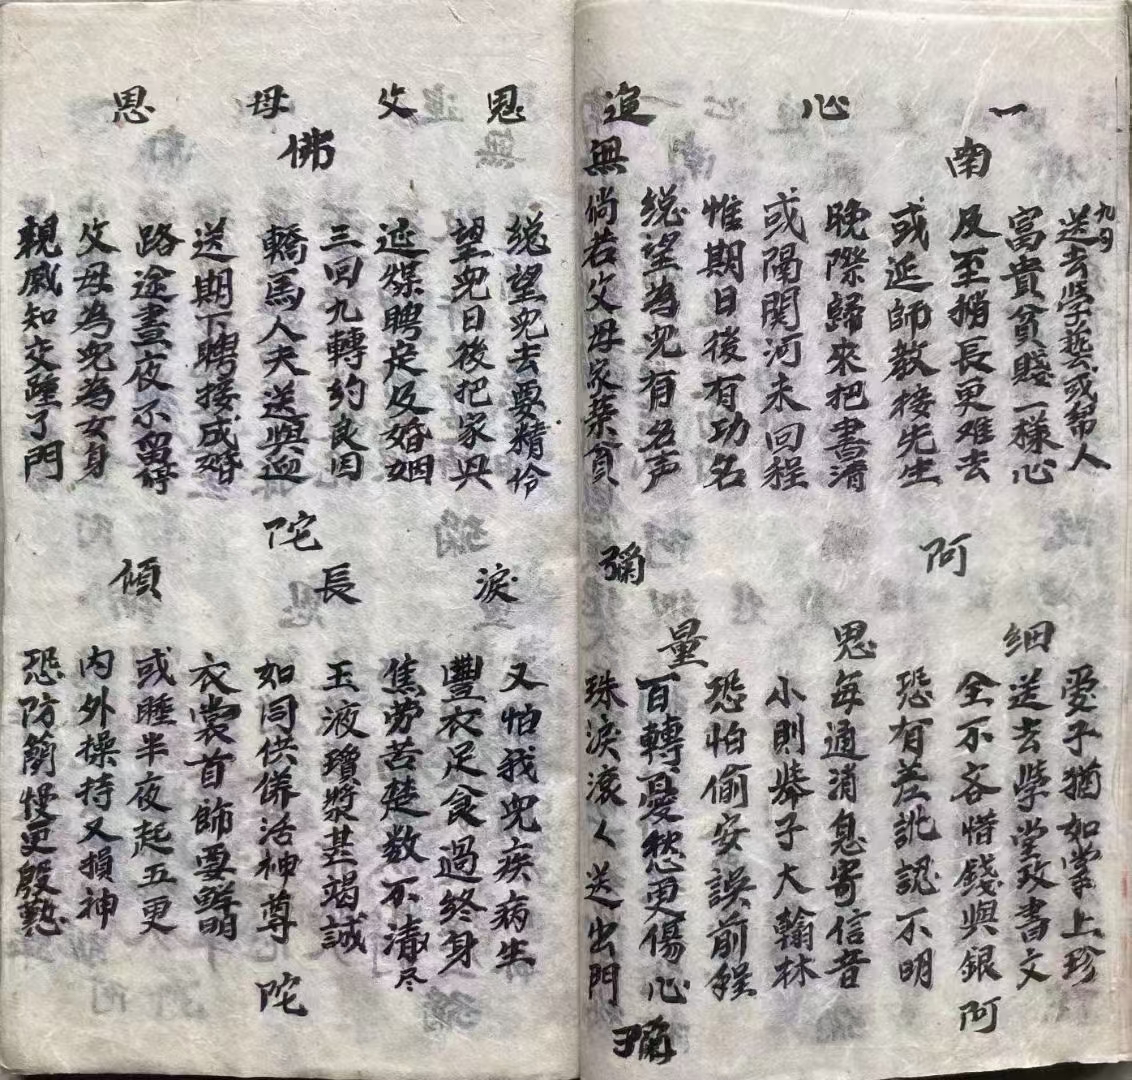 一心追
南無
九句
送去學藝或幫人
富貴貧賤一様心
及至稍長更难去
或延師教接先生
晚際歸來把書清
或隔関河未回程
惟期日後有功名
総望為兒有名声
倘若父母家業貧
阿彌
細思量
愛子猶如掌上珍
送去學堂攻書文
全不吝惜錢與銀
恐有差訛認不明
每通消息寄信音
小則舉子大翰林
恐怕偷安誤前程
百轉憂愁更傷心
珠淚滾々送出門
阿彌
恩父母恩
佛
総望兒去要精伶
望兒日後把家興
延媒聘定及婚姻
三回九轉約良因
轎馬人夫送與迎
送期下聘接成婚
路途晝夜不畱停
父母為兒為女身
親戚知交踵了門
陀
淚長傾
又怕我兒疾病生
豐衣足食過終身
焦劳苦楚数不清尽
玉液瓊漿甚竭誠
如同供佛活神尊
衣裳首飾要鮮明
或睡半夜起五更
内外操持又損神
恐防簡慢更殷懃
陀